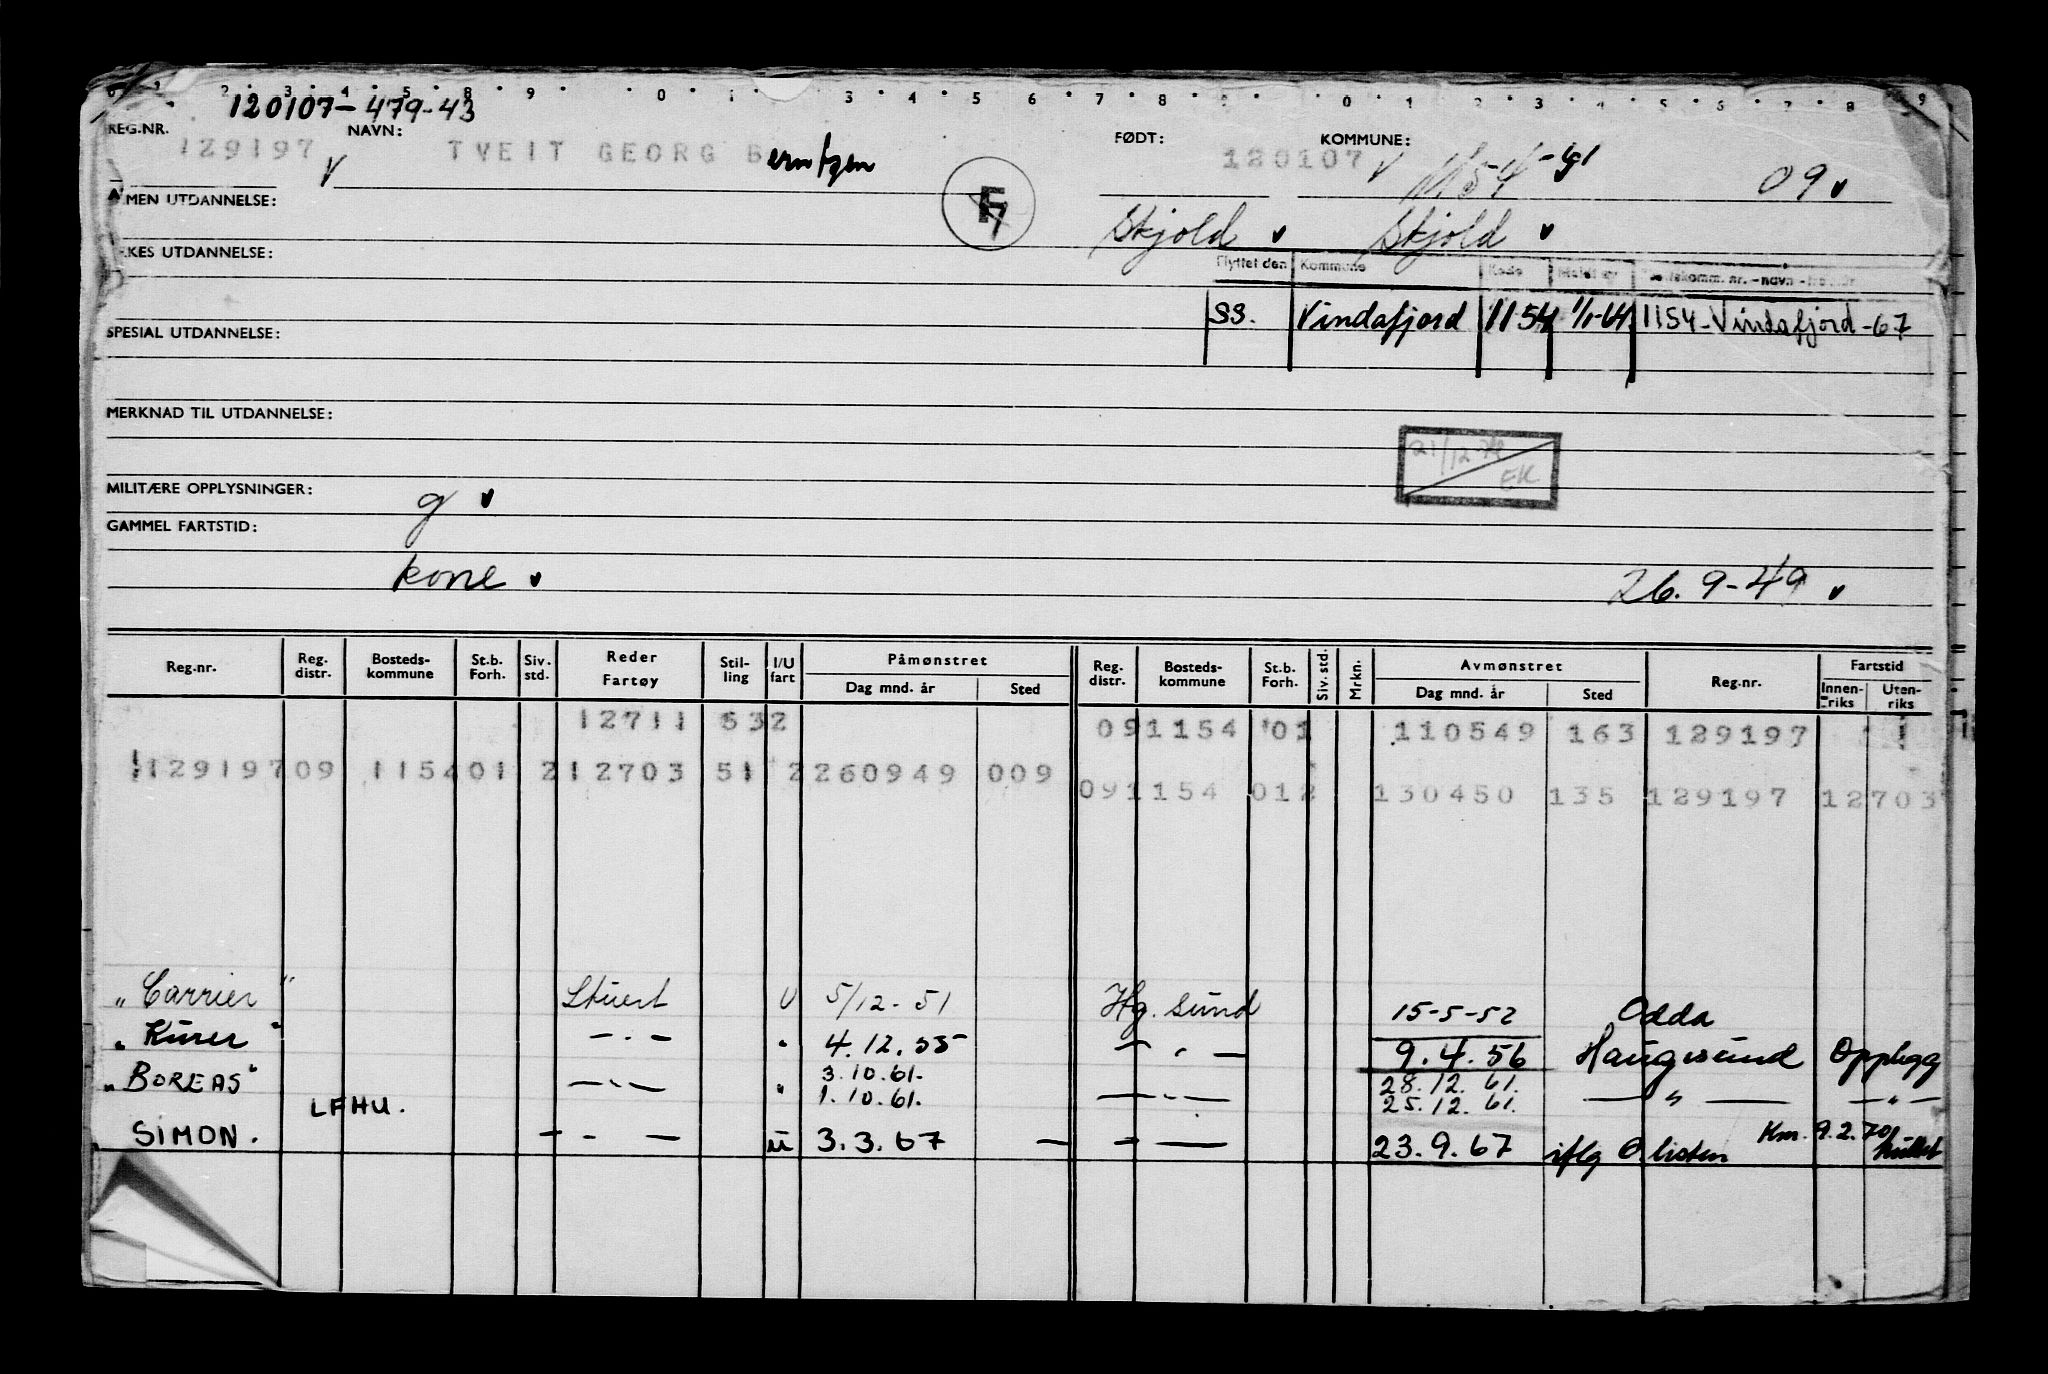 120107-479-43
REG.NR. NAVN: FØDT: KOMMUNE:
129197 TVEIT GEORG Berntzen 120107 1154 09
ALMEN UTDANNELSE:
Skjold Skjold
UTDANNELSE:
Flyttet den Kommune Kode Meldt
S3. Vindafjord 1154 1/1-64 1154-Vindafjord-67
SPESIAL UTDANNELSE:
MERKNAD TIL UTDANNELSE:
21/12 EK
MILITÆRE OPPLYSNINGER: g
GAMMEL FARTSTID:
kone 26.9-49
Reg.nr. Reg. distr. Bosteds-kommune St.b. Forh. Siv. std. Reder Fartøy Stil-ling I/U fart Påmønstret Reg. distr. Bosteds-kommune St.b. Forh. Siv. std. Mrkn. Avmønstret Reg.nr. Fartstid
Dag mnd. år Sted Dag mnd. år Sted Innen-riks Uten-riks
12711 532 091154 01 110549 163 129197
129197 09 115401 212703 51 2260949 009
091154 012 130450 135 129197 12703
"Carrier" Stuert U 5/12-51 Hg.sund 15-5-52 Odda
"Kurer" — " — " 4.12.55 — " — 9.4.56 Haugesund Opplegg
"BOREAS" — " — " 3.10.61. 28.12.61.
1.10.61. — " — 25.12.61. — " — — " —
LFHU.
SIMON. — - — u 3.3.67 — — — 23.9.67 iflg O.listen Km. 9.2.70 hullet